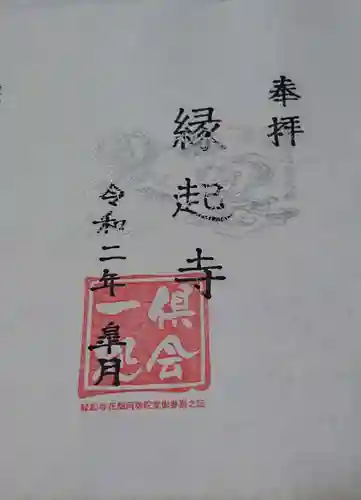 奉拝
縁起寺
令和二年 皐月
倶会
一処